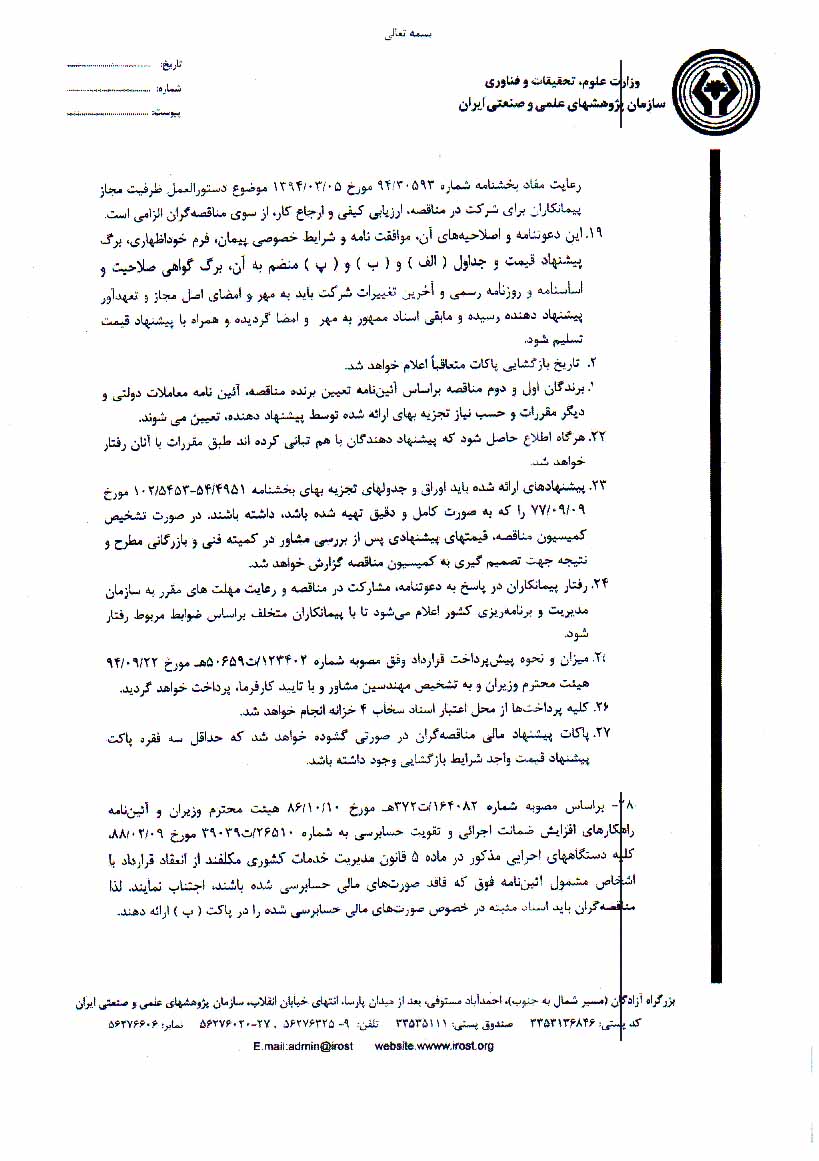 بسمه تعالی
وزارت علوم، تحقیقات و فناوری
سازمان پژوهشهای علمی و صنعتی ایران
تاریخ: ........................
شماره: ........................
پیوست: ........................
رعایت مفاد بخشنامه شماره ۹۴/۳۰۵۹۳ مورخ ۱۳۹۴/۰۳/۰۵ موضوع دستورالعمل ظرفیت مجاز
پیمانکاران برای شرکت در مناقصه، ارزیابی کیفی و ارجاع کار، از سوی مناقصه‌گران الزامی است.
۱۹. این دعوتنامه و اصلاحیه‌های آن، موافقت نامه و شرایط خصوصی پیمان، فرم خوداظهاری، برگ
پیشنهاد قیمت و جداول ( الف ) و ( ب ) و ( پ ) منضم به آن، برگ گواهی صلاحیت و
اساسنامه و روزنامه رسمی و آخرین تغییرات شرکت باید به مهر و امضای اصل مجاز و تعهدآور
پیشنهاد دهنده رسیده و مابقی اسناد ممهور به مهر و امضا گردیده و همراه با پیشنهاد قیمت
تسلیم شود.
۲. تاریخ بازگشایی پاکات متعاقباً اعلام خواهد شد.
۱. برندگان اول و دوم مناقصه براساس آئین‌نامه تعیین برنده مناقصه، آئین نامه معاملات دولتی و
دیگر مقررات و حسب نیاز تجزیه بهای ارائه شده توسط پیشنهاد دهنده، تعیین می شوند.
۲۲. هرگاه اطلاع حاصل شود که پیشنهاد دهندگان با هم تبانی کرده اند طبق مقررات با آنان رفتار
خواهد شد.
۲۳. پیشنهادهای ارائه شده باید اوراق و جدولهای تجزیه بهای بخشنامه ۱۰۲/۵۴۵۳-۵۴/۴۹۵۱ مورخ
۷۷/۰۹/۰۹ را که به صورت کامل و دقیق تهیه شده باشد، داشته باشند. در صورت تشخیص
کمیسیون مناقصه، قیمتهای پیشنهادی پس از بررسی مشاور در کمیته فنی و بازرگانی مطرح و
نتیجه جهت تصمیم گیری به کمیسیون مناقصه گزارش خواهد شد.
۲۴. رفتار پیمانکاران در پاسخ به دعوتنامه، مشارکت در مناقصه و رعایت مهلت های مقرر به سازمان
مدیریت و برنامه‌ریزی کشور اعلام می‌شود تا با پیمانکاران متخلف براساس ضوابط مربوط رفتار
شود.
۲. میزان و نحوه پیش‌پرداخت قرارداد وفق مصوبه شماره ۱۲۳۴۰۲/ت۵۰۶۵۹هـ مورخ ۹۴/۰۹/۲۲
هیئت محترم وزیران و به تشخیص مهندسین مشاور و با تایید کارفرما، پرداخت خواهد گردید.
۲۶. کلیه پرداخت‌ها از محل اعتبار اسناد سخاب ۴ خزانه انجام خواهد شد.
۲۷. پاکات پیشنهاد مالی مناقصه‌گران در صورتی گشوده خواهد شد که حداقل سه فقره پاکت
پیشنهاد قیمت واجد شرایط بازگشایی وجود داشته باشد.
۲۸- براساس مصوبه شماره ۱۶۴۰۸۲/ت۳۷۲هـ مورخ ۸۶/۱۰/۱۰ هیئت محترم وزیران و آئین‌نامه
راهکارهای افزایش ضمانت اجرائی و تقویت حسابرسی به شماره ۲۶۵۱۰/ت۳۹۰۳۹ مورخ ۸۸/۰۲/۰۹،
کلیه دستگاههای اجرایی مذکور در ماده ۵ قانون مدیریت خدمات کشوری مکلفند از انعقاد قرارداد با
اشخاص مشمول ائین‌نامه فوق که فاقد صورت‌های مالی حسابرسی شده باشند، اجتناب نمایند. لذا
مناقصه‌گران باید اسناد مثبته در خصوص صورت‌های مالی حسابرسی شده را در پاکت ( ب ) ارائه دهند.
بزرگراه آزادگان (مسیر شمال به جنوب)، احمدآباد مستوفی، بعد از میدان پارسا، انتهای خیابان انقلاب، سازمان پژوهشهای علمی و صنعتی ایران
کد پستی: ۳۳۵۳۱۳۶۸۴۶ صندوق پستی: ۳۳۵۳۵۱۱۱ تلفن: ۹-۵۶۲۷۶۳۲۵ ، ۲۷-۵۶۲۷۶۰۲۰ نمابر: ۵۶۲۷۶۶۰۶
E.mail:admin@irost website.wwww.irost.org